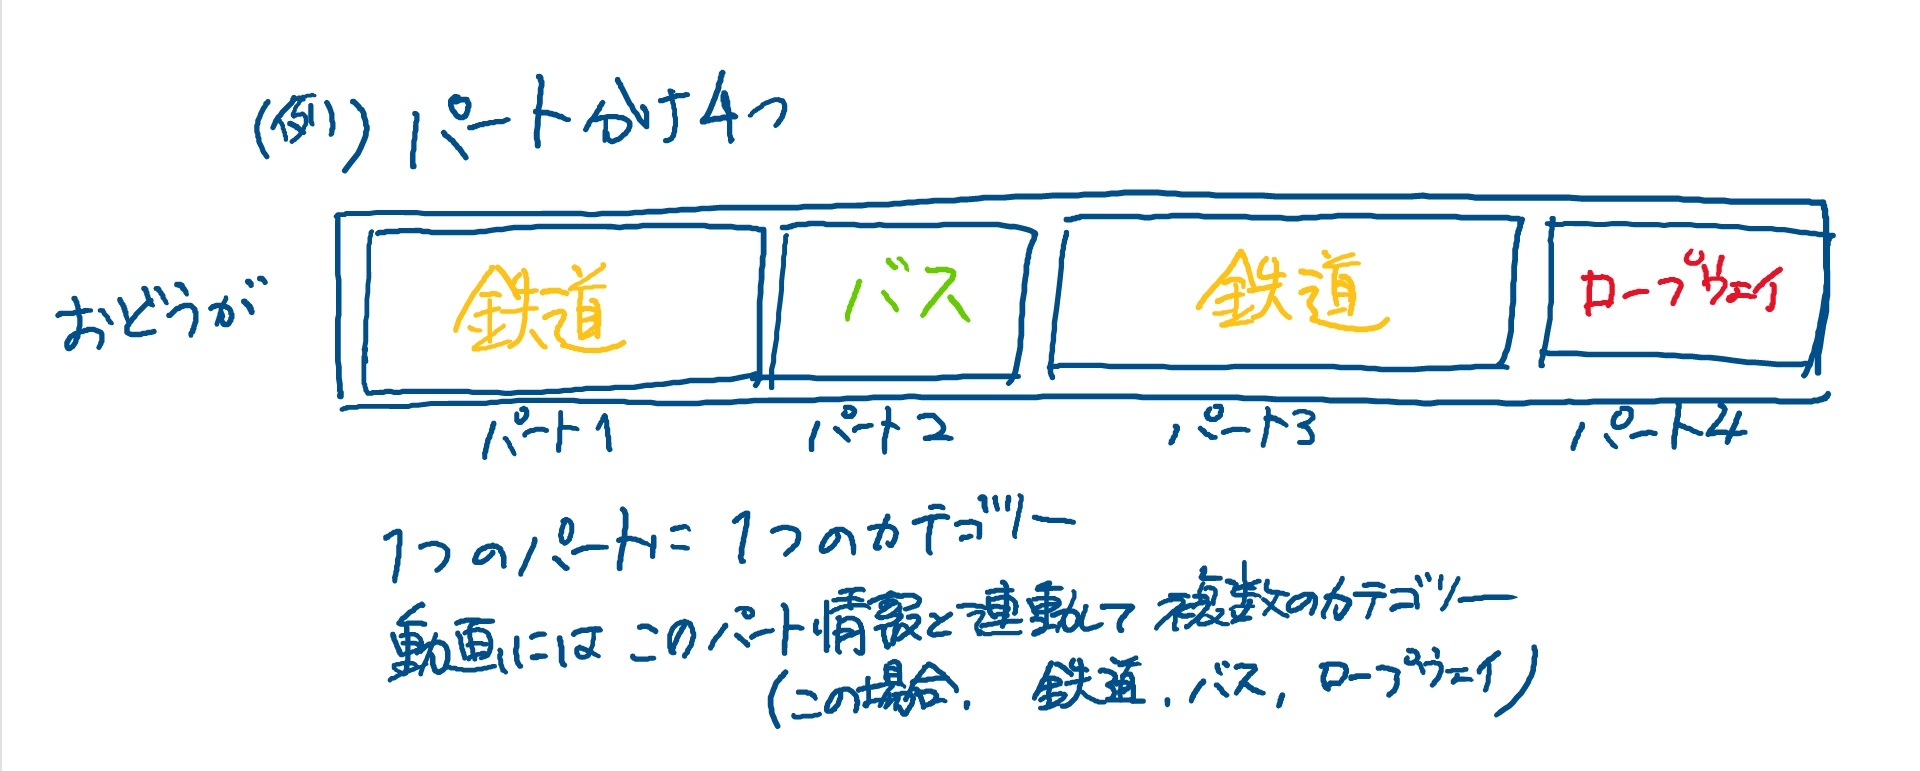 (例) パート分け4つ
おどうが
鉄道 バス 鉄道 ロープウェイ
パート1 パート2 パート3 パート4
1つのパートに1つのカテゴリー
動画にはこのパート情報と連動して複数のカテゴリー
(この場合、鉄道、バス、ロープウェイ)